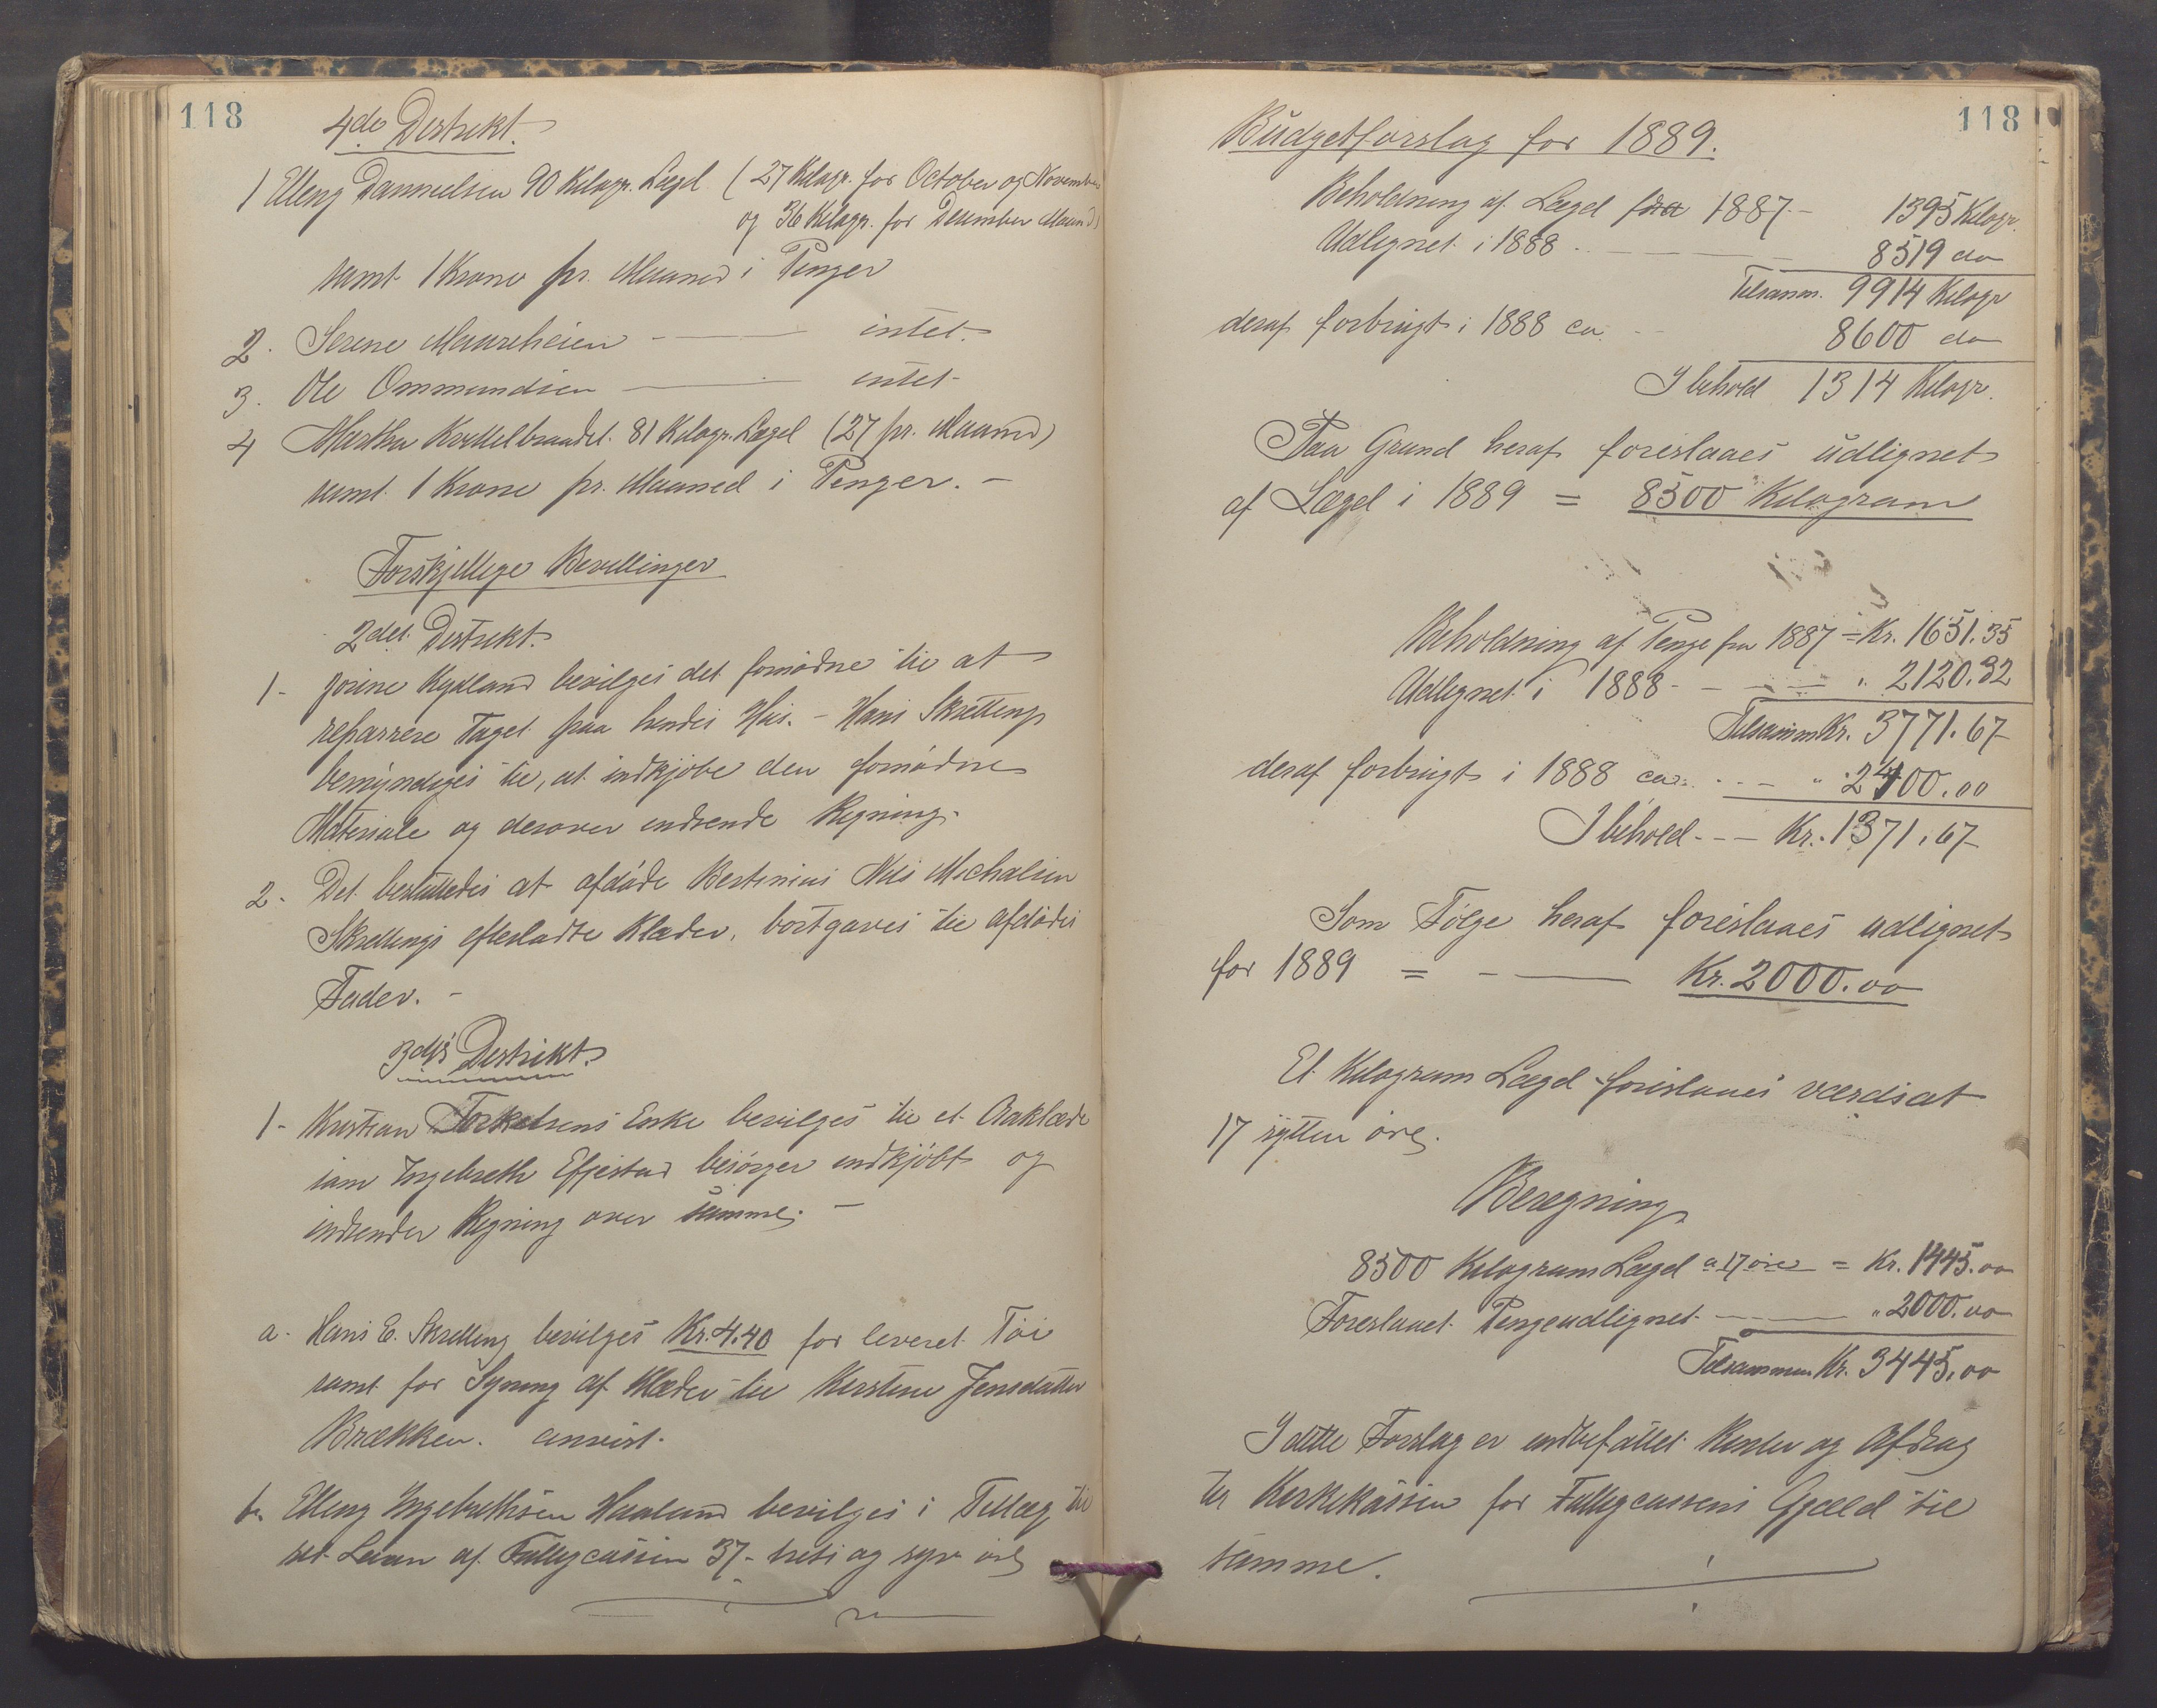 118
4de Distrikt.
1 Elleng Danmielsen 90 Kilogr. Lægd (27 Kilogr. for October og November
og 36 Kilogr. for Desember Maaned)
samt 1 Krone pr. Maaned i Penger
2. Serine Maureheien — intet.
3. Ole Ommundsen — intet
4 Martha Kvellebrandet. 81 Kilogr. Lægd (27 pr. Maaned)
samt 1 Krone pr. Maaned i Penger. –
Forskjellige Bevillinger
2det Distrikt.
1- Jorine Kydland bevilges det fornødne til at
reparere Taget paa hendes Hus. – Hans Skretting
bemyndiges til, at indkjøbe den fornødne
Materiale og derover indsende Regning.
2- Det besluttedes at afdøde Bertinius Nils Michalsen
Skrettings efterladte Klæder, bortgaves til afdødes
Fader. –
3dje Distrikt.
1- Kristian Torkelsens Enke bevilges til et Aaklæde
som Ingebreth Efjestad besørger indkjöbt og
indsender Regning over samme. –
a- Hans E. Skretting bevilges Kr. 4.40 for leveret Töi
samt for Syning af Klæder til Kirstine Jensdatter
Brækken. anvist.
b. Elleng Ingebrethsen Haaland bevilges i Tillæg til
set Laan af Fattigcassen 37- treti og syv öre
118
Budgetforslag for 1889.
Beholdning af Lægd fra 1887 – 1395 Kilogr.
Udlignet i 1888 – 8519 do
Tilsamm. 9914 Kilogr
deraf forbrugt i 1888 ca. – 8600 do
I behold 1314 Kilogr.
Paa Grund heraf foreslaaes udlignet
af Lægd i 1889 = 8500 Kilogram
Beholdning af Penge fra 1887 = Kr. 1651.35
Udlignet i 1888 – " 2120.32
Tilsamm Kr. 3771.67
deraf forbrugt i 1888 ca. – " 2400.00
I behold – Kr. 1371.67
Som Følge heraf foreslaaes udlignet
for 1889 = – Kr. 2000.00
Et Kilogram Lægd foreslaaes værdisat
17 sytten öre.
Beregning
8500 Kilogram Lægd a 17 öre = Kr. 1445.00
Foreslaaet Pengeudlignet – " 2000.00
Tilsammen Kr. 3445.00
I dette Forslag er indbefattet Renter og Afdrag
til Kirkekassen for Fattigcassens Gjæld til
samme.